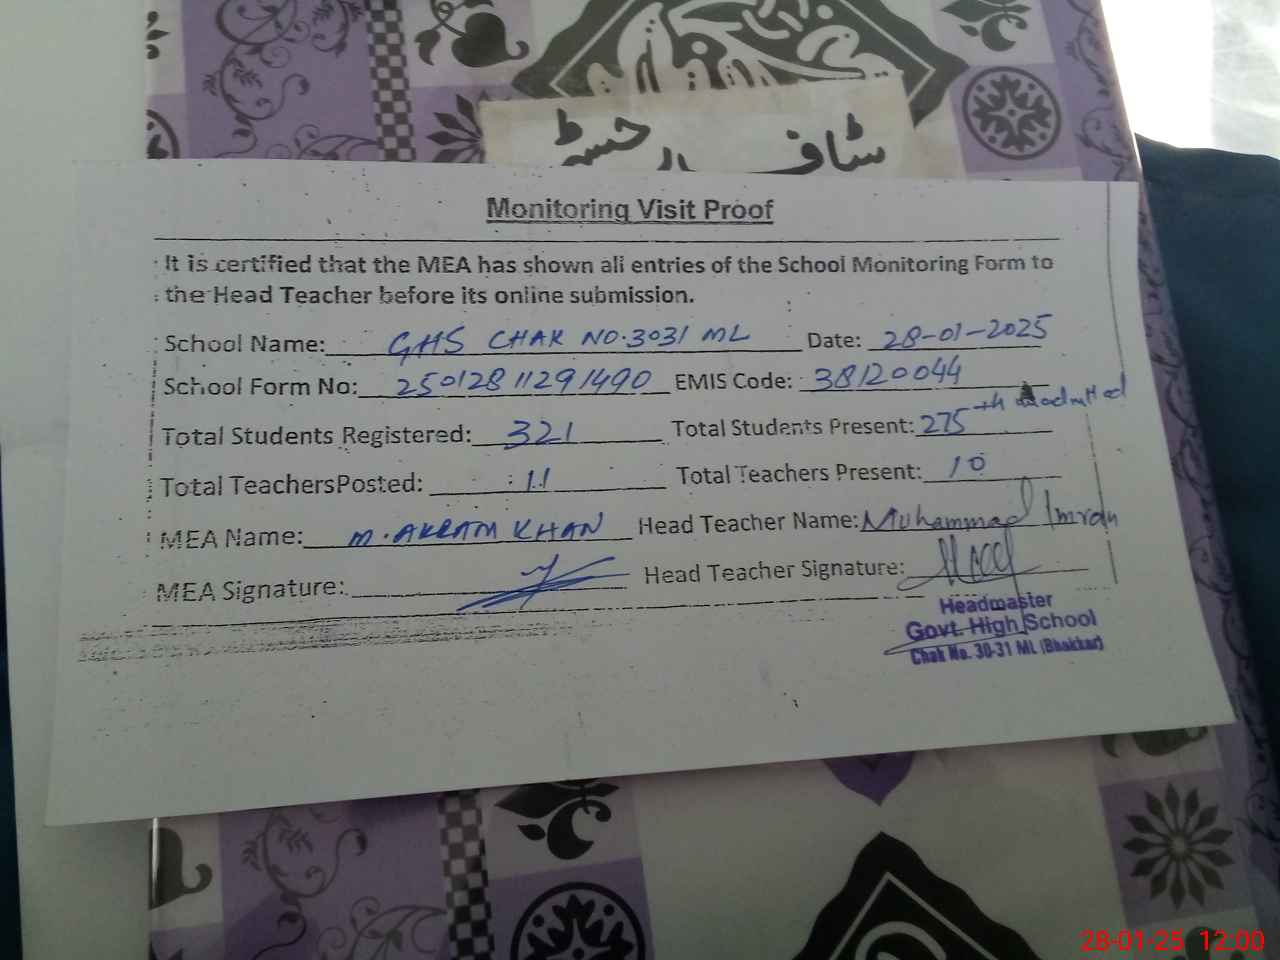 سٹاف رجسٹر
Monitoring Visit Proof
It is certified that the MEA has shown all entries of the School Monitoring Form to
the Head Teacher before its online submission.
School Name: GHS CHAK NO.3031 ML Date: 28-01-2025
School Form No: 25012811291490 EMIS Code: 38120044
Total Students Registered: 321 Total Students Present: 275
Total TeachersPosted: 11 Total Teachers Present: 10
MEA Name: M. AKRAM KHAN Head Teacher Name: Muhammad Imran
MEA Signature: Head Teacher Signature:
Headmaster
Govt. High School
Chak No. 30-31 ML (Bhakkar)
28-01-25 12:00